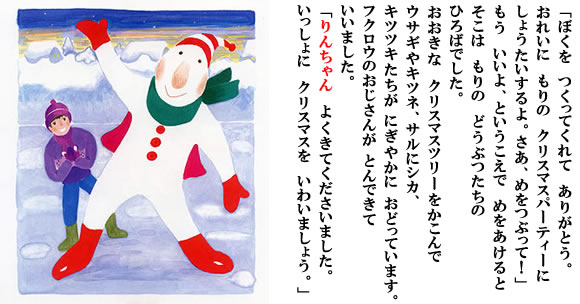 「ぼくを　つくってくれて　ありがとう。
おれいに　もりの　クリスマスパーティーに
しょうたいするよ。さあ、めをつぶって！」
もう　いいよ、というこえで　めをあけると
そこは　もりの　どうぶつたちの
ひろばでした。
おおきな　クリスマスツリーをかこんで
ウサギやキツネ、サルにシカ、
キツツキたちが　にぎやかに　おどっています。
フクロウのおじさんが　とんできて
いいました。
「りんちゃん　よくきてくださいました。
いっしょに　クリスマスを　いわいましょう。」